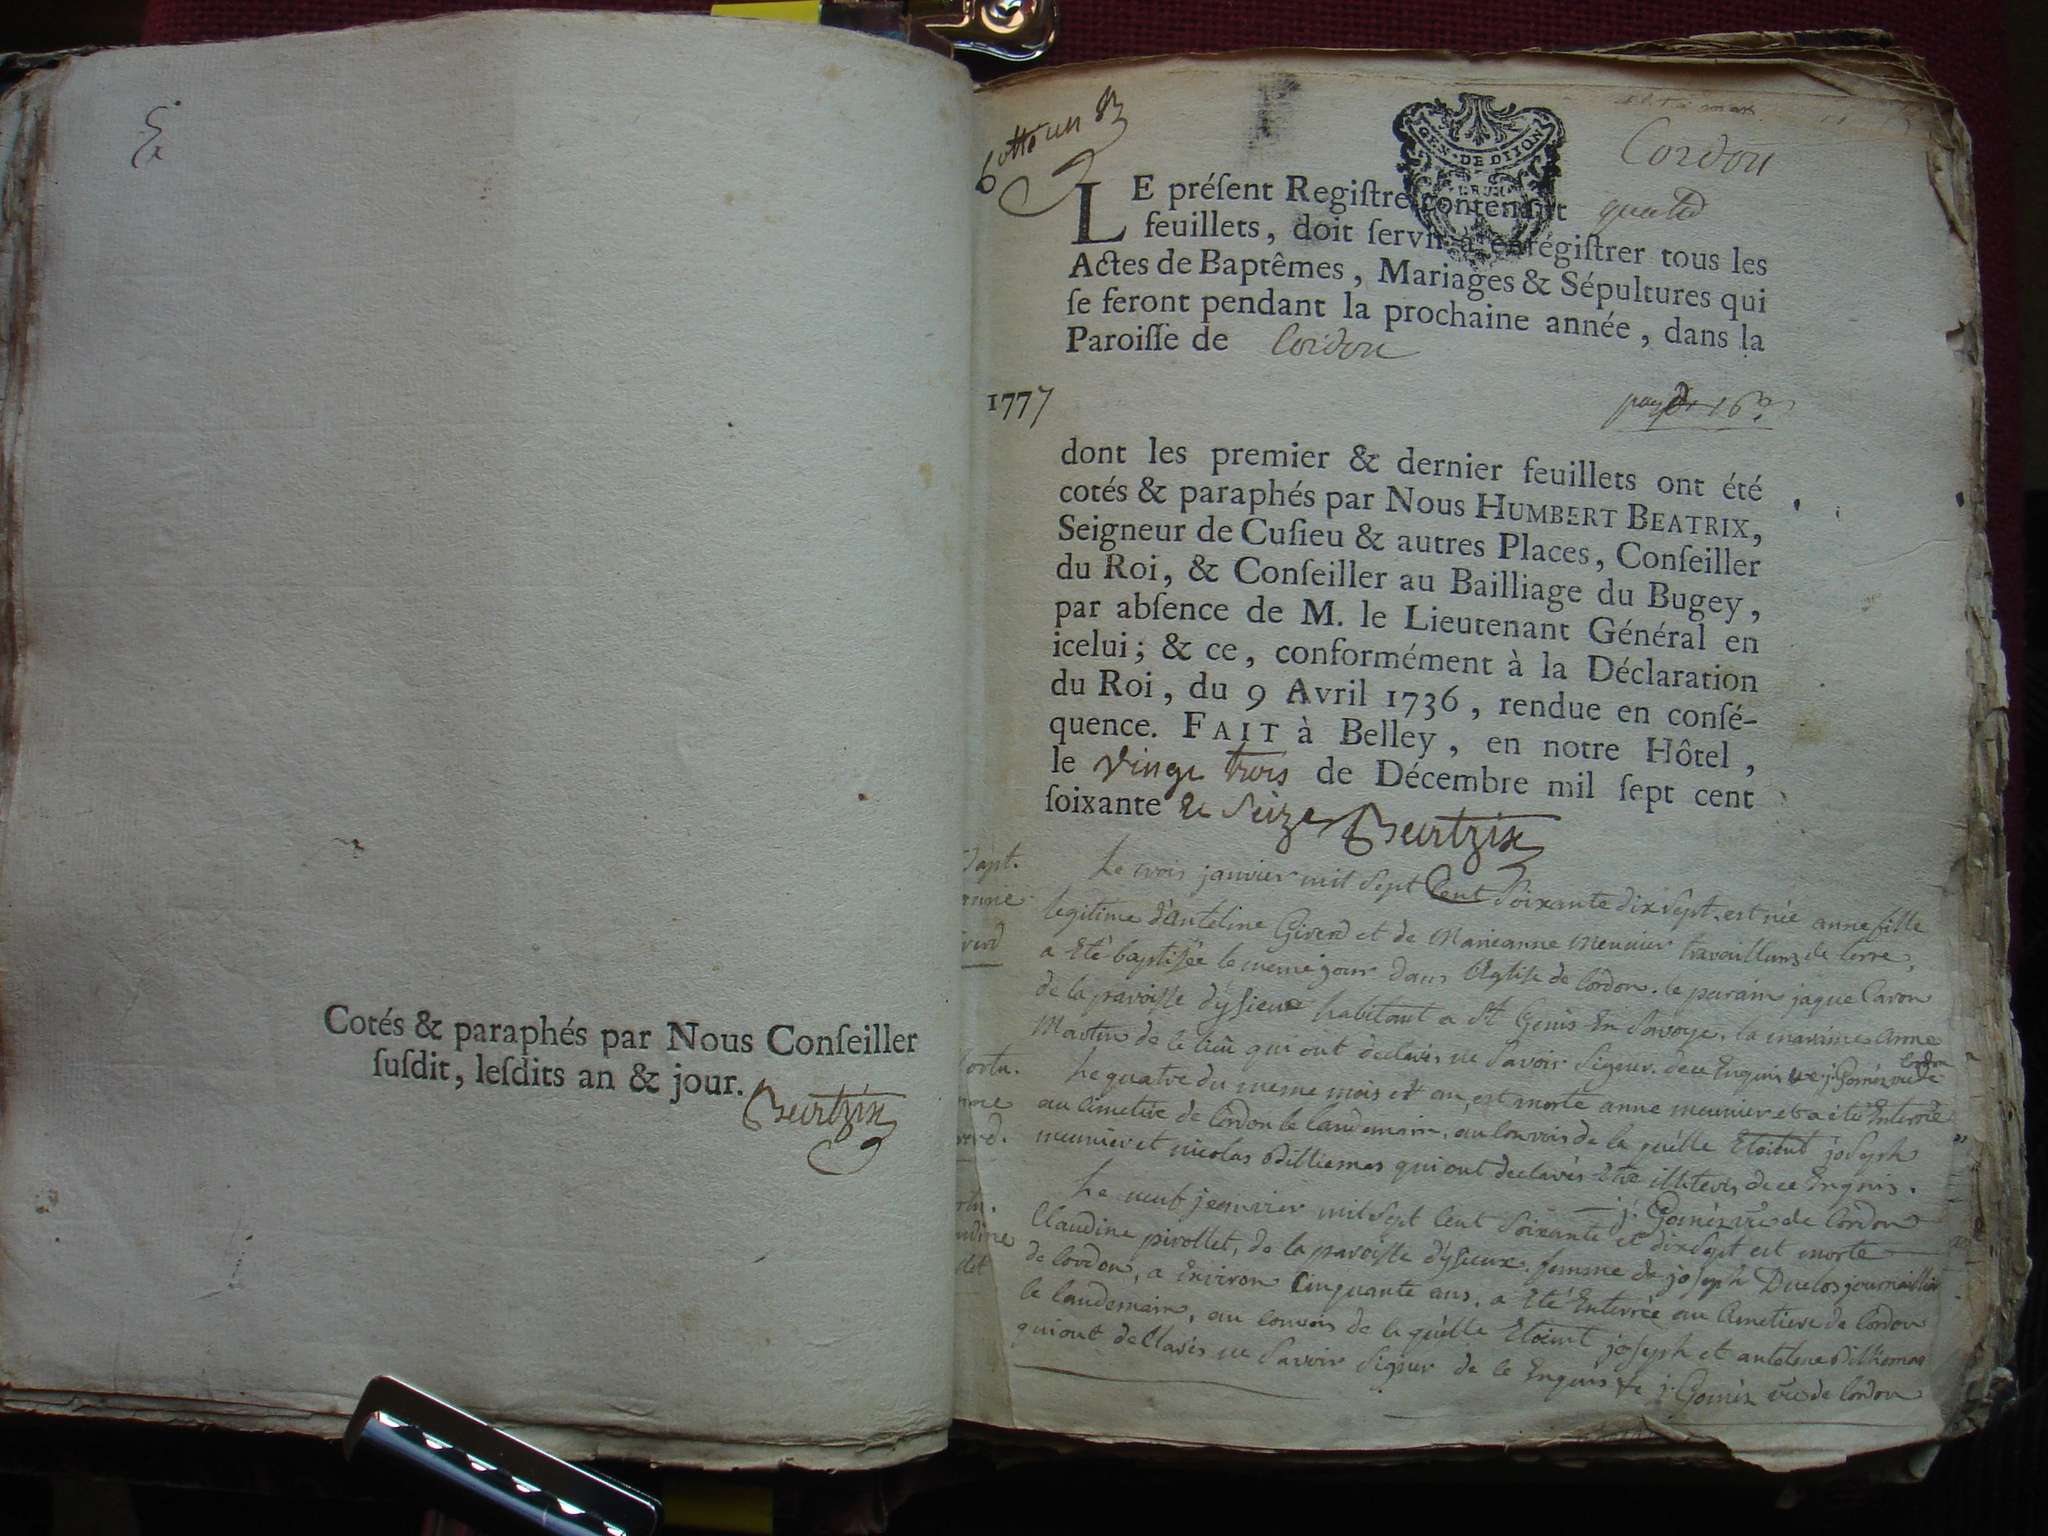 Cotés & paraphés par Nous Conſeiller
ſuſdit, leſdits an & jour.
Beatrix
GEN. DE DIJON
Cordon
LE préſent Regiſtre contenant quatre
feuillets, doit ſervir à enrégiſtrer tous les
Actes de Baptêmes, Mariages & Sépultures qui
ſe feront pendant la prochaine année, dans la
Paroiſſe de Cordon
1777
dont les premier & dernier feuillets ont été
cotés & paraphés par Nous HUMBERT BEATRIX,
Seigneur de Cuſieu & autres Places, Conſeiller
du Roi, & Conſeiller au Bailliage du Bugey,
par abſence de M. le Lieutenant Général en
icelui; & ce, conformément à la Déclaration
du Roi, du 9 Avril 1736, rendue en conſé-
quence. FAIT à Belley, en notre Hôtel,
le vingt trois de Décembre mil ſept cent
ſoixante et Seize Beatrix
Le trois janvier mil Sept Cent Soixante dix Sept. est née anne fille
legitime d'anteline Girerd et de Marieanne meunier travailleurs de terre,
a Eté baptisée le meme jour dans l'Eglise de Cordon. le parain jaque Caron
de la paroisse d'ysieux habitant a St Genis En Savoye, la maraine Anne
Martin de ce lieu qui ont declarés ne Savoir Signer. de ce Enquis
Cordon
Le quatre du meme mois et an, est morte anne meunier et a été Enterrée
au Cimetiere de Cordon le landemain, au Convois de la quelle Etoient joSeph
meunier et nicolas Billiemas qui ont declarés Etre illiterés de ce Enquis.
j. Gomès vre de Cordon
Le neuf jeanvier mil Sept Cent Soixante et dix Sept est morte
Claudine pirollet, de la paroisse d'ysieux. femme de joSeph Duclos journaillier
de Cordon, a Environ Cinquante ans, a Eté Enterrée au Cimetiere de Cordon
le landemain, au Convois de la quelle Etoient joSeph et antelme Billiemas
qui ont declarés ne Savoir Signer de ce Enquis j. Gomès vre de Cordon